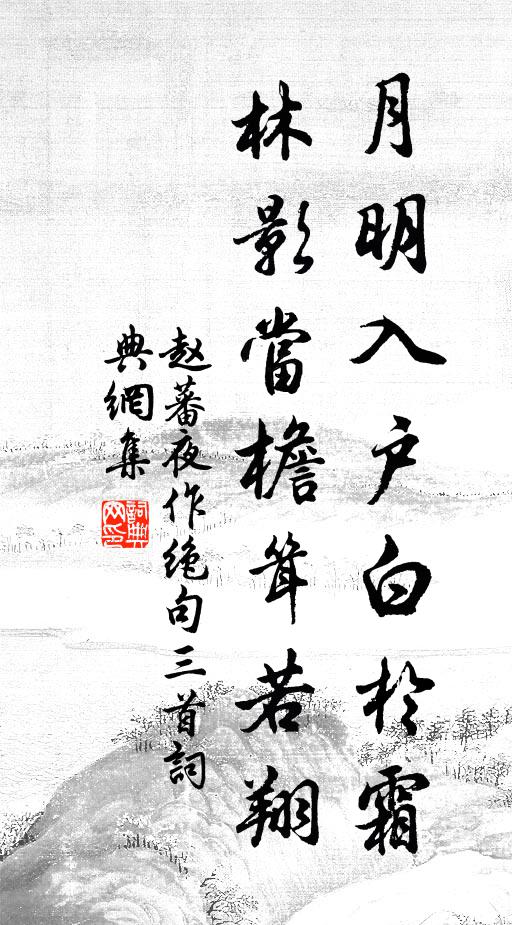 月明入户白於霜
林影當檐耸若翔
赵蕃夜作绝句三首詞
典網集
詞典网印